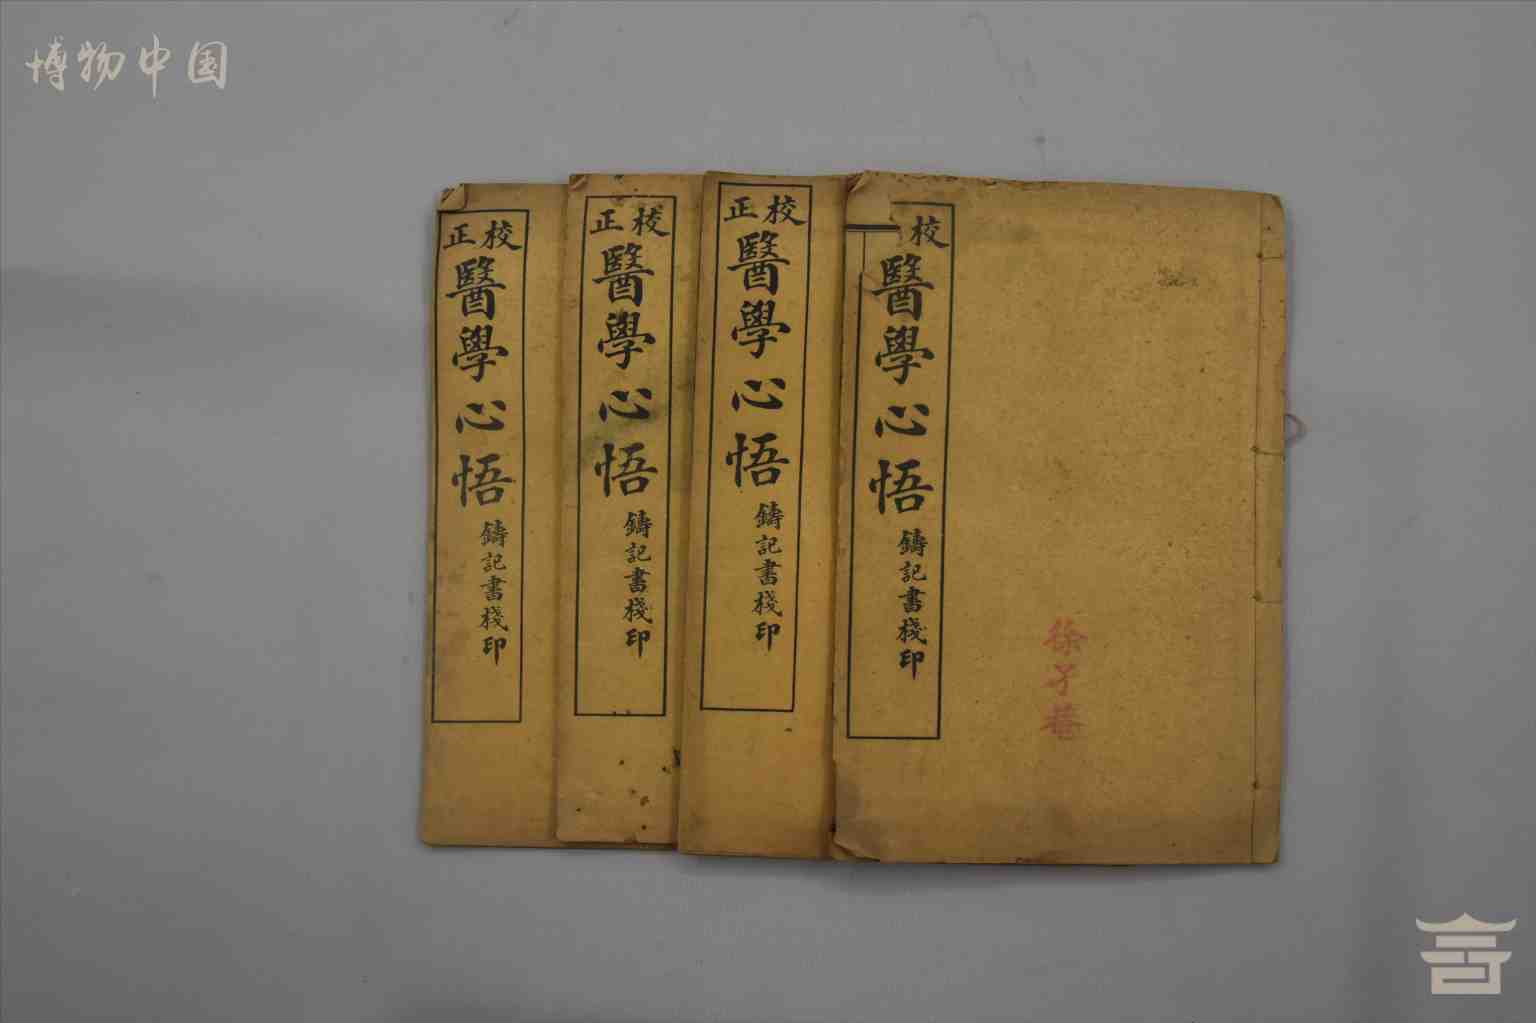 博物中国
校正
醫學心悟
鑄記書棧印
校正
醫學心悟
鑄記書棧印
校正
醫學心悟
鑄記書棧印
校
醫學心悟
鑄記書棧印
徐子菴